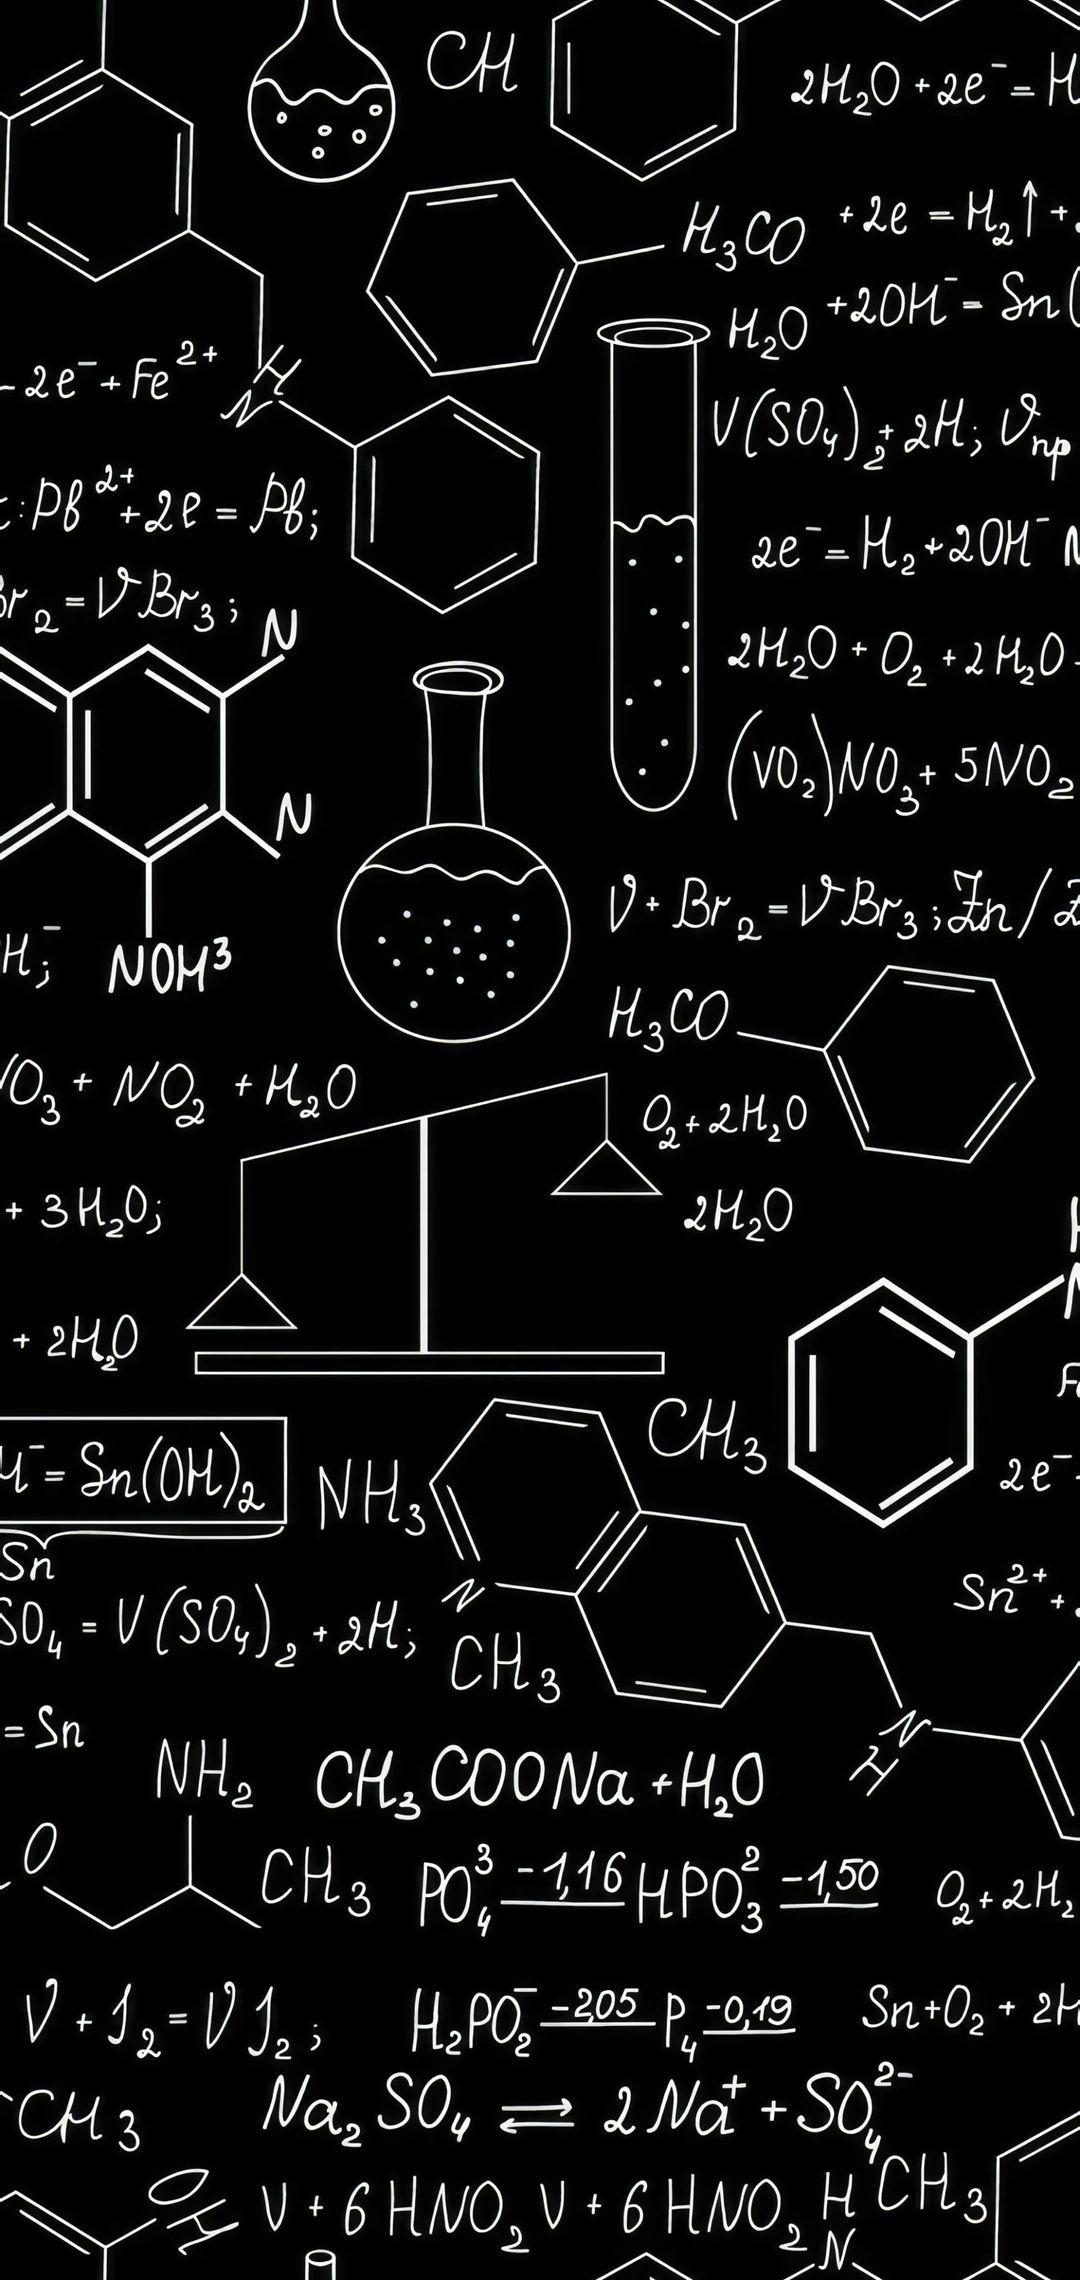 CH
2H₂O + 2e⁻ = H
H₃CO
+2e = H₂↑ +
H₂O +2OH⁻ = Sn(
- 2e⁻ + Fe²⁺
H
N
V(SO₄)₂ + 2H; Vnp
: Pb²⁺ + 2e = Pb;
2e⁻ = H₂ + 2OH⁻ N
Br₂ = VBr₃;
N
2H₂O + O₂ + 2H₂O
(VO₂)NO₃ + 5NO₂
N
V + Br₂ = VBr₃; Zn/Z
H;⁻
NOH³
H₃CO
O₃ + NO₂ + H₂O
O₂ + 2H₂O
+ 3H₂O;
2H₂O
H
N
+ 2H₂O
Fe
CH₃
2e⁻
H⁻ = Sn(OH)₂
NH₃
Sn
N
Sn²⁺ +
SO₄ = V(SO₄)₂ + 2H;
CH₃
= Sn
N
H
NH₂
CH₃COONa + H₂O
O
CH₃
PO₄³ -1,16 HPO₃² -1,50
O₂ + 2H₂
V + J₂ = VJ₂;
H₂PO₂⁻ -2,05 P₄ -0,19
Sn + O₂ + 2H
CH₃
Na₂SO₄ ⇌ 2Na⁺ + SO₄²⁻
OH
V + 6HNO₂ V + 6HNO₂
H
N
CH₃